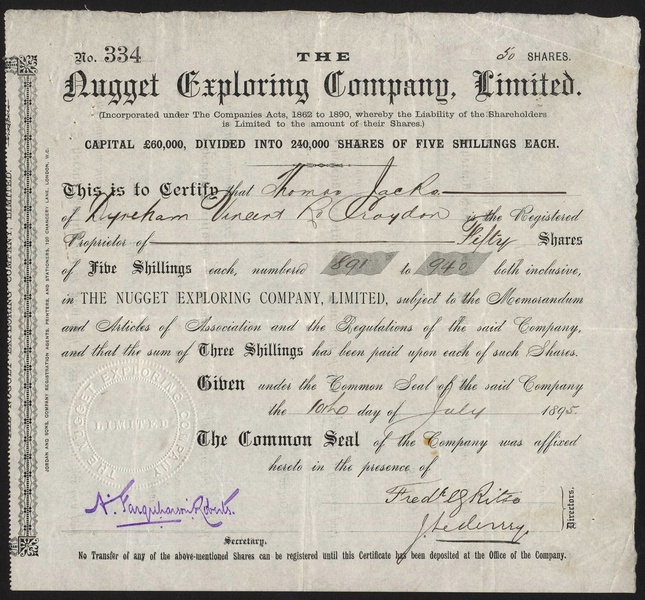 No. 334 THE 50 SHARES.
Nugget Exploring Company, Limited.
(Incorporated under The Companies Acts, 1862 to 1890, whereby the Liability of the Shareholders
is Limited to the amount of their Shares.)
CAPITAL £60,000, DIVIDED INTO 240,000 SHARES OF FIVE SHILLINGS EACH.
This is to Certify that Thomas Jacks
of Dyreham Vincent Rd Croydon is the Registered
Proprietor of Fifty Shares
of Five Shillings each, numbered 891 to 940 both inclusive,
in THE NUGGET EXPLORING COMPANY, LIMITED, subject to the Memorandum
and Articles of Association and the Regulations of the said Company,
and that the sum of Three Shillings has been paid upon each of such Shares.
Given under the Common Seal of the said Company
the 10th day of July 1895.
The Common Seal of the Company was affixed
hereto in the presence of
THE NUGGET EXPLORING COMPANY
LIMITED
A. Farquharson Roberts.
Secretary.
Fredk
Directors.
No Transfer of any of the above-mentioned Shares can be registered until this Certificate has been deposited at the Office of the Company.
JORDAN AND SONS, COMPANY REGISTRATION AGENTS, PRINTERS, AND STATIONERS, 120 CHANCERY LANE, LONDON, W.C.